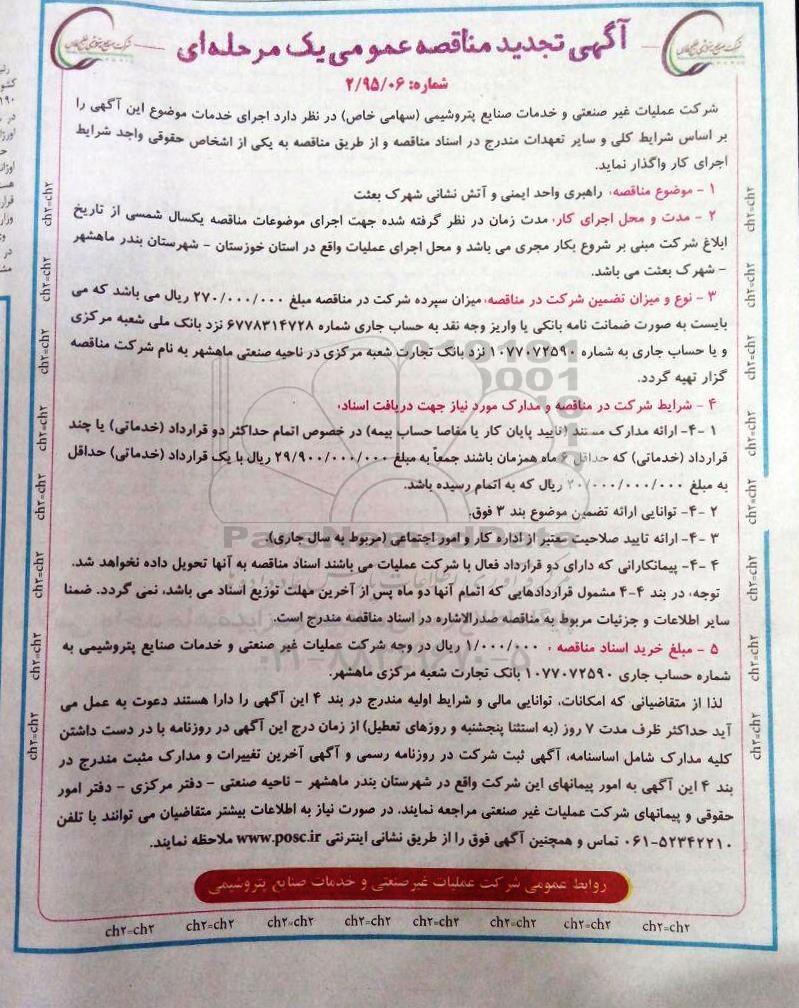 آگهی تجدید مناقصه عمومی یک مرحله‌ای
شماره: ۲/۹۵/۰۶
شرکت عملیات غیر صنعتی و خدمات صنایع پتروشیمی (سهامی خاص) در نظر دارد اجرای خدمات موضوع این آگهی را
بر اساس شرایط کلی و سایر تعهدات مندرج در اسناد مناقصه و از طریق مناقصه به یکی از اشخاص حقوقی واجد شرایط
اجرای کار واگذار نماید.
۱ - موضوع مناقصه: راهبری واحد ایمنی و آتش نشانی شهرک بعثت
۲ - مدت و محل اجرای کار: مدت زمان در نظر گرفته شده جهت اجرای موضوعات مناقصه یکسال شمسی از تاریخ
ابلاغ شرکت مبنی بر شروع بکار مجری می باشد و محل اجرای عملیات واقع در استان خوزستان - شهرستان بندر ماهشهر
- شهرک بعثت می باشد.
۳ - نوع و میزان تضمین شرکت در مناقصه: میزان سپرده شرکت در مناقصه مبلغ ۲۷۰/۰۰۰/۰۰۰ ریال می باشد که می
بایست به صورت ضمانت نامه بانکی یا واریز وجه نقد به حساب جاری شماره ۶۷۷۸۳۱۴۷۲۸ نزد بانک ملی شعبه مرکزی
و یا حساب جاری به شماره ۱۰۷۷۰۷۲۵۹۰ نزد بانک تجارت شعبه مرکزی در ناحیه صنعتی ماهشهر به نام شرکت مناقصه
گزار تهیه گردد.
۴ - شرایط شرکت در مناقصه و مدارک مورد نیاز جهت دریافت اسناد:
۱ -۴- ارائه مدارک مستند (تایید پایان کار یا مفاصا حساب بیمه) در خصوص اتمام حداکثر دو قرارداد (خدماتی) یا چند
قرارداد (خدماتی) که حداقل ۶ ماه همزمان باشند جمعاً به مبلغ ۲۹/۹۰۰/۰۰۰/۰۰۰ ریال با یک قرارداد (خدماتی) حداقل
به مبلغ ۲۰/۰۰۰/۰۰۰/۰۰۰ ریال که به اتمام رسیده باشد.
۲ -۴- توانایی ارائه تضمین موضوع بند ۳ فوق.
۳ -۴- ارائه تایید صلاحیت معتبر از اداره کار و امور اجتماعی (مربوط به سال جاری).
۴ -۴- پیمانکارانی که دارای دو قرارداد فعال با شرکت عملیات می باشند اسناد مناقصه به آنها تحویل داده نخواهد شد.
توجه: در بند ۴-۴ مشمول قراردادهایی که اتمام آنها دو ماه پس از آخرین مهلت توزیع اسناد می باشد، نمی گردد. ضمنا
سایر اطلاعات و جزئیات مربوط به مناقصه صدرالاشاره در اسناد مناقصه مندرج است.
۵ - مبلغ خرید اسناد مناقصه : ۱/۰۰۰/۰۰۰ ریال در وجه شرکت عملیات غیر صنعتی و خدمات صنایع پتروشیمی به
شماره حساب جاری ۱۰۷۷۰۷۲۵۹۰ بانک تجارت شعبه مرکزی ماهشهر.
لذا از متقاضیانی که امکانات، توانایی مالی و شرایط اولیه مندرج در بند ۴ این آگهی را دارا هستند دعوت به عمل می
آید حداکثر ظرف مدت ۷ روز (به استثنا پنجشنبه و روزهای تعطیل) از زمان درج این آگهی در روزنامه با در دست داشتن
کلیه مدارک شامل اساسنامه، آگهی ثبت شرکت در روزنامه رسمی و آگهی آخرین تغییرات و مدارک مثبت مندرج در
بند ۴ این آگهی به امور پیمانهای این شرکت واقع در شهرستان بندر ماهشهر - ناحیه صنعتی - دفتر مرکزی - دفتر امور
حقوقی و پیمانهای شرکت عملیات غیر صنعتی مراجعه نمایند. در صورت نیاز به اطلاعات بیشتر متقاضیان می توانند با تلفن
۰۶۱-۵۲۳۴۲۲۱۰ تماس و همچنین آگهی فوق را از طریق نشانی اینترنتی www.posc.ir ملاحظه نمایند.
روابط عمومی شرکت عملیات غیرصنعتی و خدمات صنایع پتروشیمی
ch۲=ch۲ ch۲=ch۲ ch۲=ch۲ ch۲=ch۲ ch۲=ch۲ ch۲=ch۲ ch۲=ch۲ ch۲=ch۲